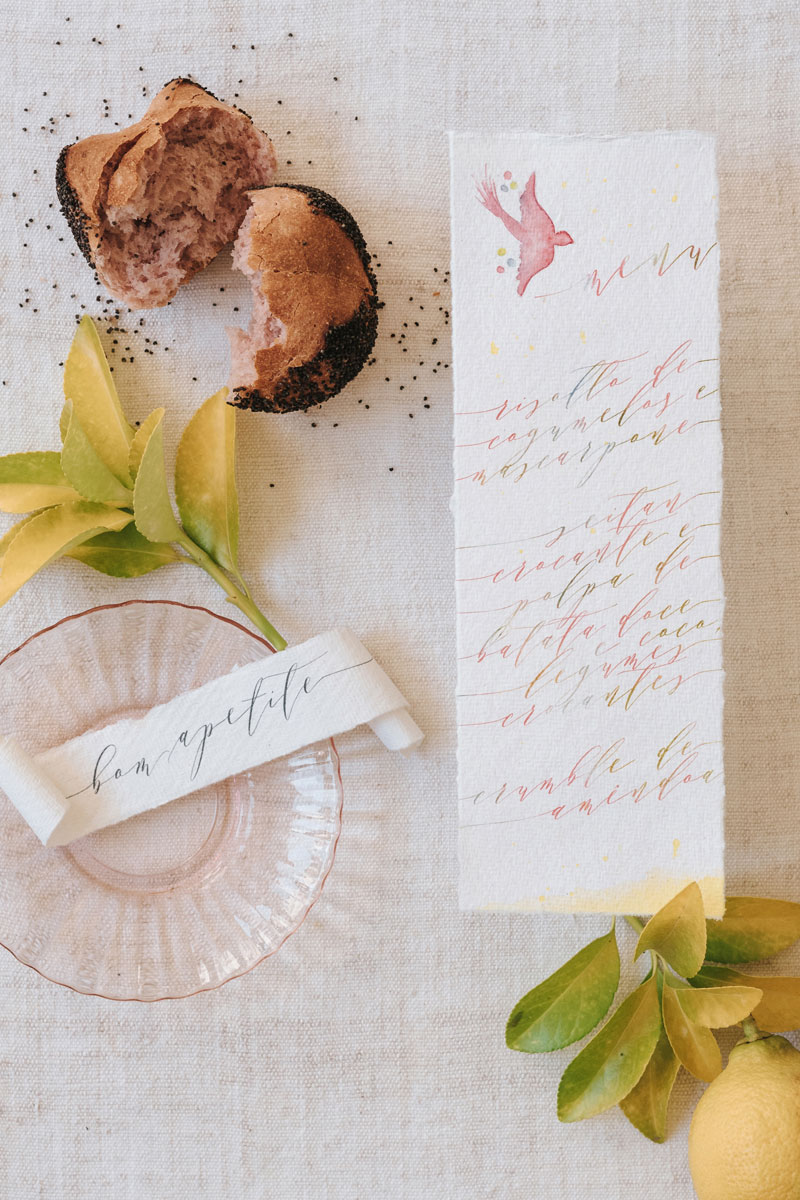 menu
risotto de
cogumelos e
mascarpone
seitan
crocante e
polpa de
batata doce
e coco,
legumes
crocantes
crumble de
amêndoa
bom apetite